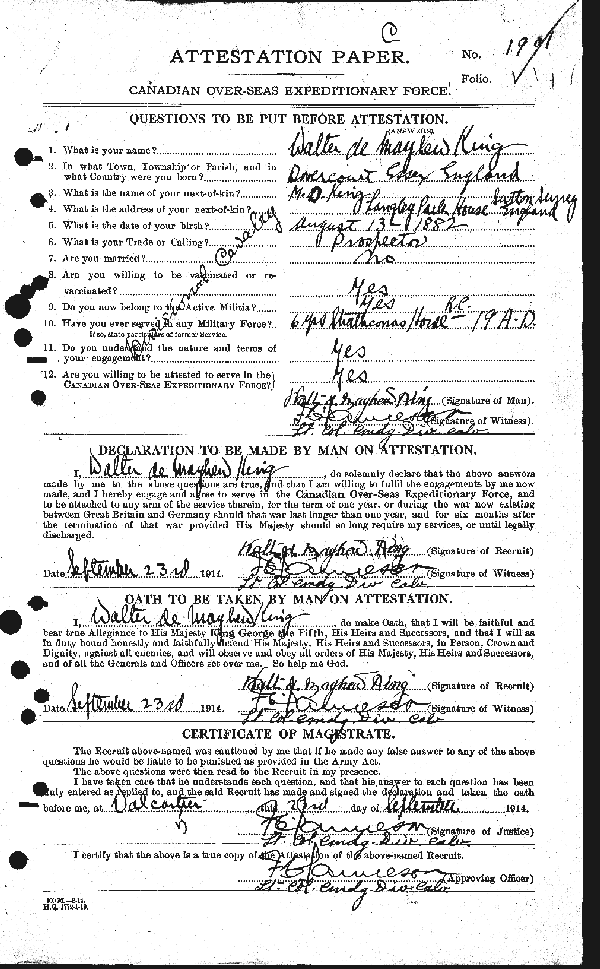 C
ATTESTATION PAPER.
No.
Folio.
CANADIAN OVER-SEAS EXPEDITIONARY FORCE.
QUESTIONS TO BE PUT BEFORE ATTESTATION.
1. What is your name? Walter de Mayhew King
2. In what Town, Township or Parish, and in
what Country were you born? Dovercourt Essex England
3. What is the name of your next-of-kin? King
4. What is the address of your next-of-kin? Langley Park House Sutton Surrey England
5. What is the date of your birth? August 13th 1882
6. What is your Trade or Calling? Prospector
7. Are you married? No
8. Are you willing to be vaccinated or re-
vaccinated? Yes
9. Do you now belong to the Active Militia? Yes
10. Have you ever served in any Military Force? 6 Strathconas Horse 19 A.D.
If so, state particulars of former Service.
11. Do you understand the nature and terms of
your engagement? Yes
12. Are you willing to be attested to serve in the
CANADIAN OVER-SEAS EXPEDITIONARY FORCE? Yes
Divisional Cavalry
Walt de Mayhew King (Signature of Man).
F C Jamieson (Signature of Witness)
Lt Col Comdg Div Cav
DECLARATION TO BE MADE BY MAN ON ATTESTATION.
I, Walter de Mayhew King, do solemnly declare that the above answers
made by me to the above questions are true, and that I am willing to fulfil the engagements by me now
made, and I hereby engage and agree to serve in the Canadian Over-Seas Expeditionary Force, and
to be attached to any arm of the service therein, for the term of one year, or during the war now existing
between Great Britain and Germany should that war last longer than one year, and for six months after
the termination of that war provided His Majesty should so long require my services, or until legally
discharged.
Walt de Mayhew King (Signature of Recruit)
Date September 23rd 1914. F C Jamieson (Signature of Witness)
Lt Col Comdg Div Cav
OATH TO BE TAKEN BY MAN ON ATTESTATION.
I, Walter de Mayhew King, do make Oath, that I will be faithful and
bear true Allegiance to His Majesty King George the Fifth, His Heirs and Successors, and that I will as
in duty bound honestly and faithfully defend His Majesty, His Heirs and Successors, in Person, Crown and
Dignity, against all enemies, and will observe and obey all orders of His Majesty, His Heirs and Successors,
and of all the Generals and Officers set over me. So help me God.
Walt de Mayhew King (Signature of Recruit)
Date September 23rd 1914. F C Jamieson (Signature of Witness)
Lt Col Comdg Div Cav
CERTIFICATE OF MAGISTRATE.
The Recruit above-named was cautioned by me that if he made any false answer to any of the above
questions he would be liable to be punished as provided in the Army Act.
The above questions were then read to the Recruit in my presence.
I have taken care that he understands each question, and that his answer to each question has been
duly entered as replied to, and the said Recruit has made and signed the declaration and taken the oath
before me, at Valcartier this 23rd day of September 1914.
F C Jamieson (Signature of Justice)
Lt Col Comdg Div Cav
I certify that the above is a true copy of the Attestation of the above-named Recruit.
F C Jamieson (Approving Officer)
Lt Col Comdg Div Cav